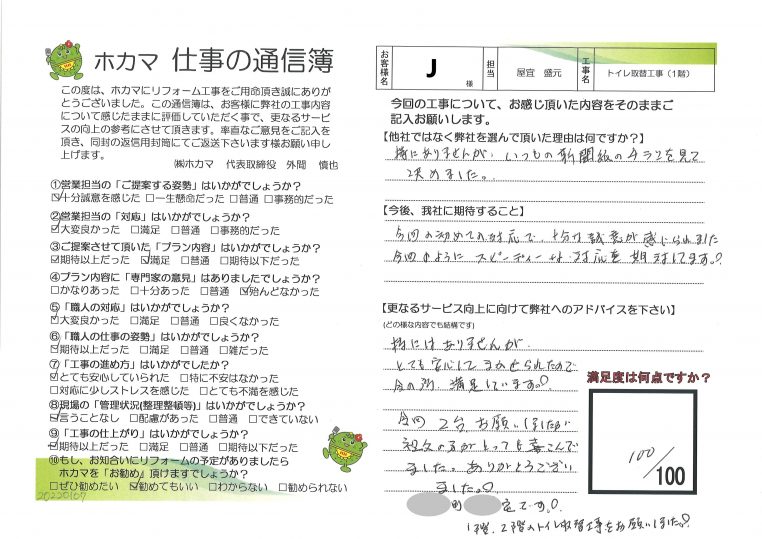 ホカマ 仕事の通信簿
この度は、ホカマにリフォーム工事をご用命頂き誠にありが
とうございました。この通信簿は、お客様に弊社の工事内容
について感じたままに評価していただく事で、更なるサービ
スの向上の参考にさせて頂きます。率直なご意見をご記入を
頂き、同封の返信用封筒にてご返送下さいます様お願い申し
上げます。
㈱ホカマ 代表取締役 外間 慎也
①営業担当の「ご提案する姿勢」はいかがでしょうか?
☑十分誠意を感じた □一生懸命だった □普通 □事務的だった
②営業担当の「対応」はいかがでしょうか?
☑大変良かった □満足 □普通 □事務的だった
③ご提案させて頂いた「プラン内容」はいかがでしょうか?
☑期待以上だった ☑満足 □普通 □期待以下だった
④プラン内容に「専門家の意見」はありましたでしょうか?
□かなりあった □十分あった □普通 ☑殆んどなかった
⑤「職人の対応」はいかがでしょうか?
☑大変良かった □満足 □普通 □良くなかった
⑥「職人の仕事の姿勢」はいかがでしょうか?
☑期待以上だった □満足 □普通 □雑だった
⑦「工事の進め方」はいかがでしたか?
☑とても安心していられた □特に不安はなかった
□対応に少しストレスを感じた □とても不満を感じた
⑧現場の「管理状況(整理整頓等)」はいかがでしょうか?
☑言うことなし □配慮があった □普通 □できていない
⑨「工事の仕上がり」はいかがでしょうか?
☑期待以上だった □満足 □普通 □期待以下だった
⑩もし、お知合いにリフォームの予定がありましたら
ホカマを「お勧め」頂けますでしょうか?
□ぜひ勧めたい ☑勧めてもいい □わからない □勧められない
20220107
お客様名 J 様 担当 屋宜 盛元 工事名 トイレ取替工事(1階)
今回の工事について、お感じ頂いた内容をそのままご
記入お願いします。
【他社ではなく弊社を選んで頂いた理由は何ですか?】
特にありませんが、いつもの新聞紙のチラシを見て
決めました。
【今後、我社に期待すること】
今回の初めての対応で、十分な誠意が感じられました
今回のようにスピーディーな対応を期待してます。
【更なるサービス向上に向けて弊社へのアドバイスを下さい】
(どの様な内容でも結構です)
特にはありませんが
とても安心してまかせられたので
今の所、満足しています。
今回 2台お願いしましたが
祖父の方がとっても喜こんで
ました。ありがとうござい
ました。
町 定です。
1階、2階のトイレ取替工事をお願いしました。
満足度は何点ですか?
100/100